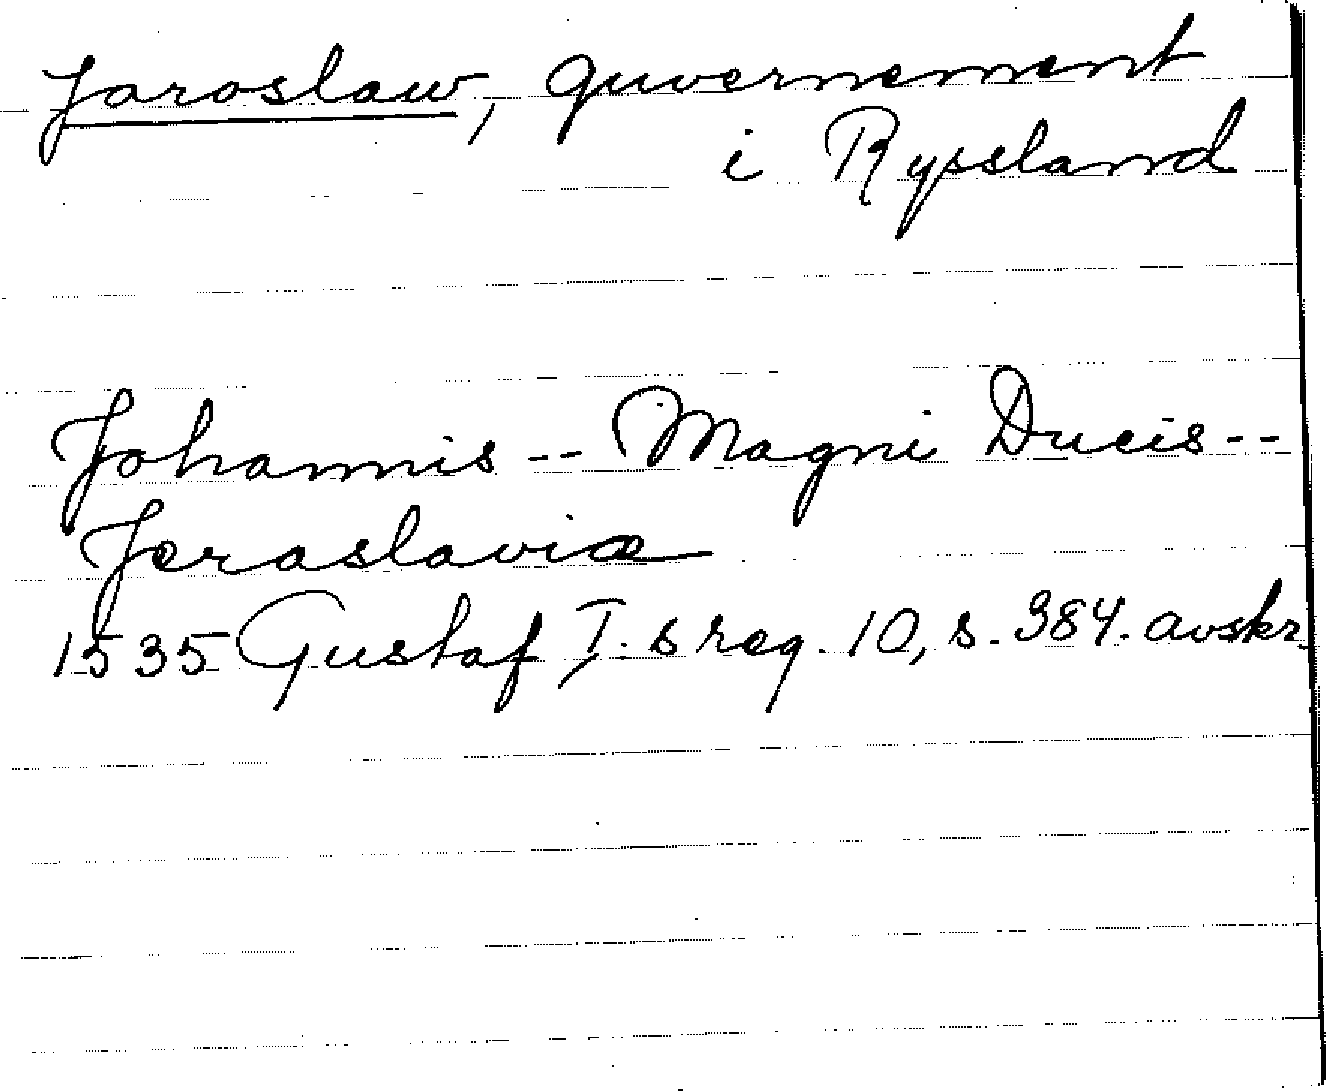 Jaroslaw, guvernement
i Ryssland
Johannis -- Magni Ducis --
Jeraslaviæ
1535 Gustaf I. s reg. 10, s. 384. avskr.